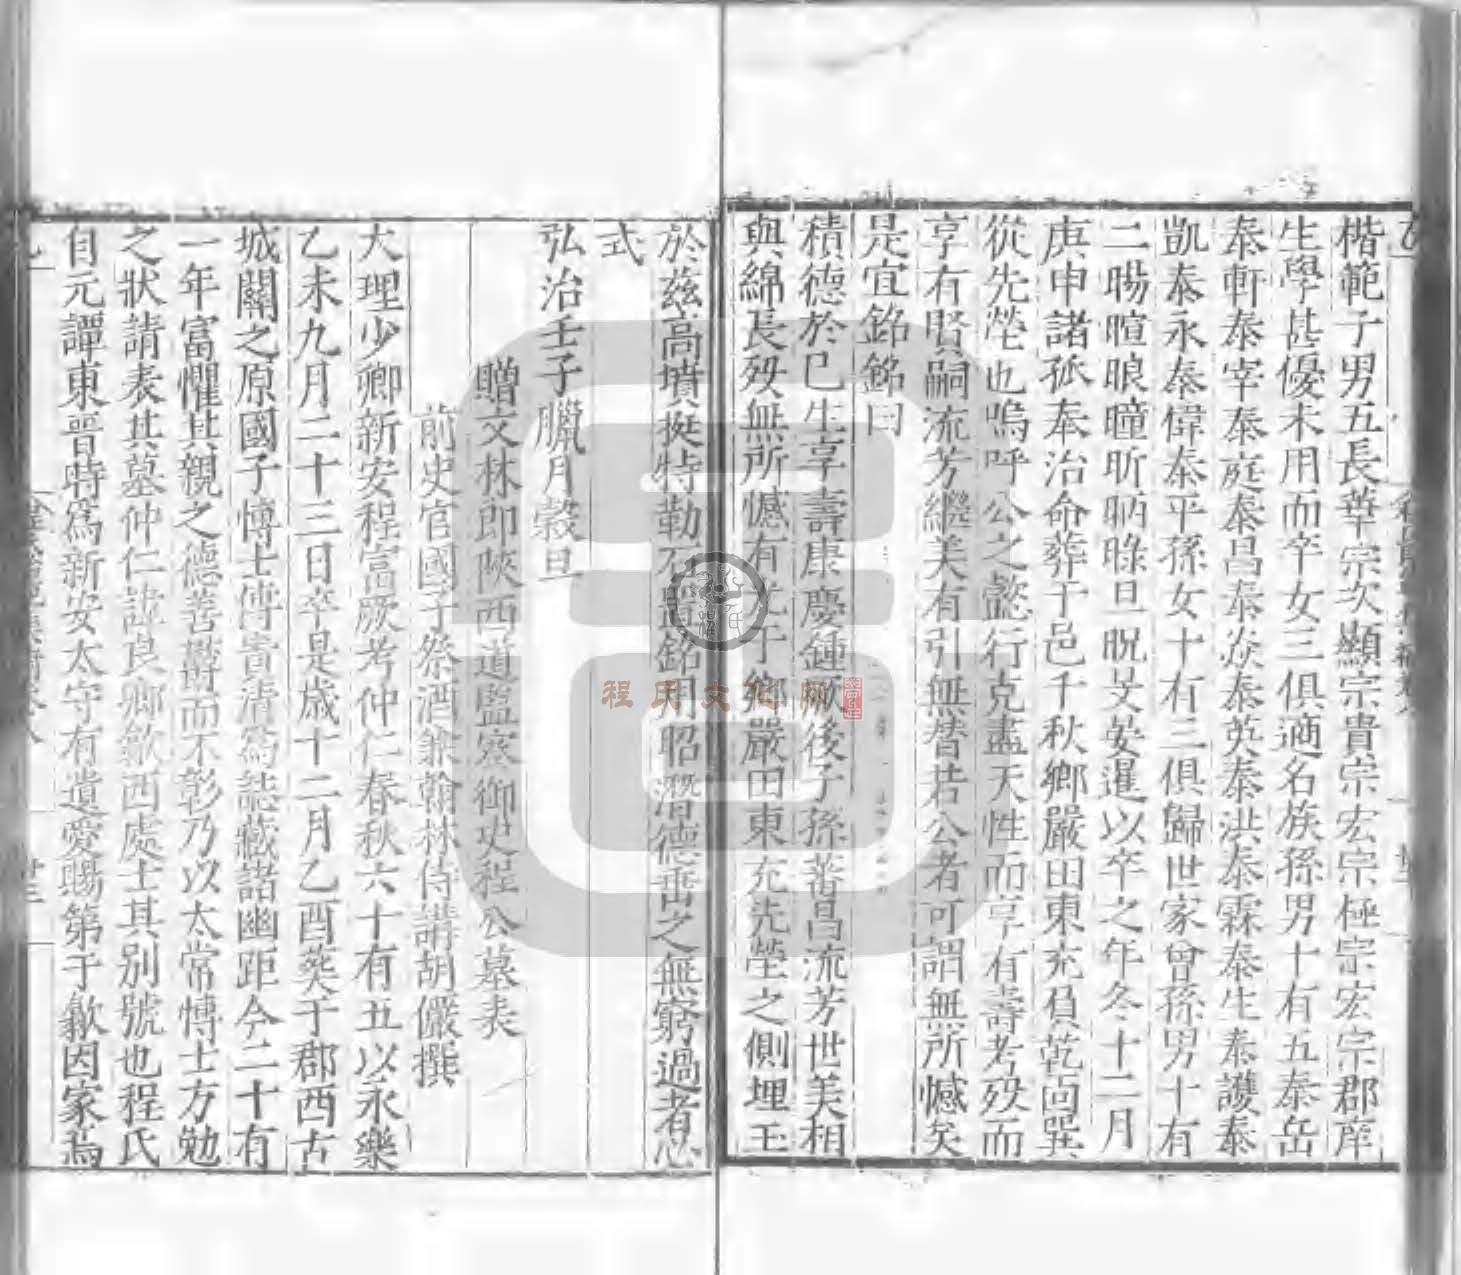 楷範子男五長華宗次顯宗貴宗宏宗極宗宏宗郡庠
生學甚優未用而卒女三俱適名族孫男十有五泰岳
泰軒泰宰泰庭泰昌泰焱泰英泰洪泰霖泰生泰護泰
凱泰永泰偉泰平孫女十有三俱歸世家曾孫男十有
二暘暄㫰曈昕昞㫽旦晛旼晏暹以卒之年冬十二月
庚申諸孤奉治命葬于邑千秋鄉嚴田東充負乾向巽
從先塋也嗚呼公之懿行克盡天性而享有壽考歿而
享有賢嗣流芳繼美有引無替若公者可謂無所憾矣
是宜銘銘曰
積德於已生享壽康慶鍾厥後子孫蕃昌流芳世美相
與綿長歿無所憾有光于鄉嚴田東充先塋之側埋玉
於兹高墳挺特勒石置銘用昭潛德垂之無窮過者必
式
弘治壬子臘月穀旦
贈文林郎陝西道監察御史程公墓表
前史官國子祭酒兼翰林侍講胡儼撰
大理少卿新安程富厥考仲仁春秋六十有五以永樂
乙未九月二十三日卒是歲十二月乙酉葬于郡西古
城關之原國子博士傅賓清為誌藏諸幽距今二十有
一年富懼其親之德善鬱而不彰乃以太常博士方勉
之狀請表其墓仲仁諱良卿歙西處士其別號也程氏
自元譚東晉時為新安太守有遺愛賜第于歙因家焉
程氏文化网